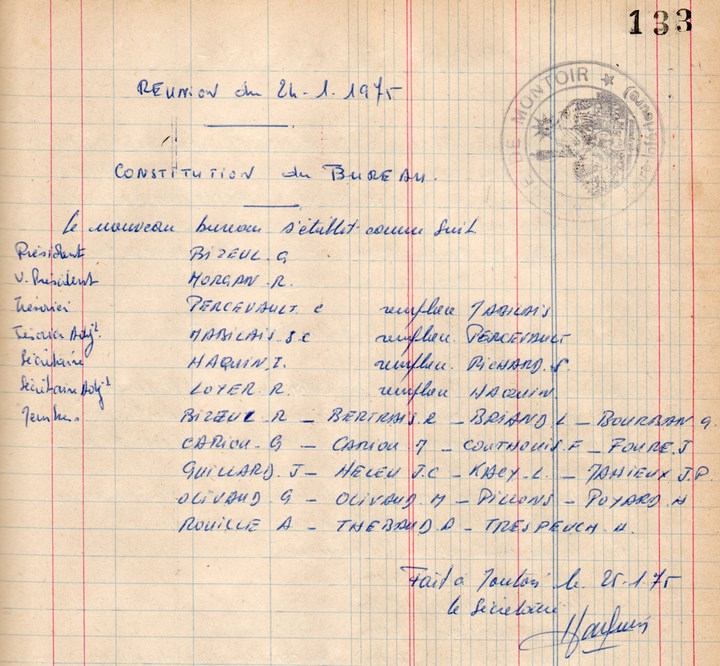 133
DE MONTOIR
REUNION du 24.1.1975
CONSTITUTION du BUREAU.
Le nouveau bureau s'établit comme suit
Président BIZEUL.G
V. Président MORGAN.R.
Trésorier PERCEVAULT.C remplace MABILAIS
Trésorier Adjt. MABILAIS.J.C remplace PERCEVAULT
Secrétaire HAQUIN.I. remplace RICHARD.S.
Secrétaire Adjt LOYER.R. remplace HAQUIN.
Membres BIZEUL.R – BERTRAIS.R – BRIAND.L – BOURBAN G.
CARIOU.G – CARIOU M – COUTHOUIS.F – FOURE.J
GUILLARD.J – HELEU J.C – KACY.L. – MAHIEUX J.P.
OLIVAUD.G – OLIVAUD.M – PILLON S – POYARD.H
ROUILLE A – THEBAUD.A – TRESPEUCH.H.
Fait à Montoir le 25.1.75
le Secrétaire
Haquin